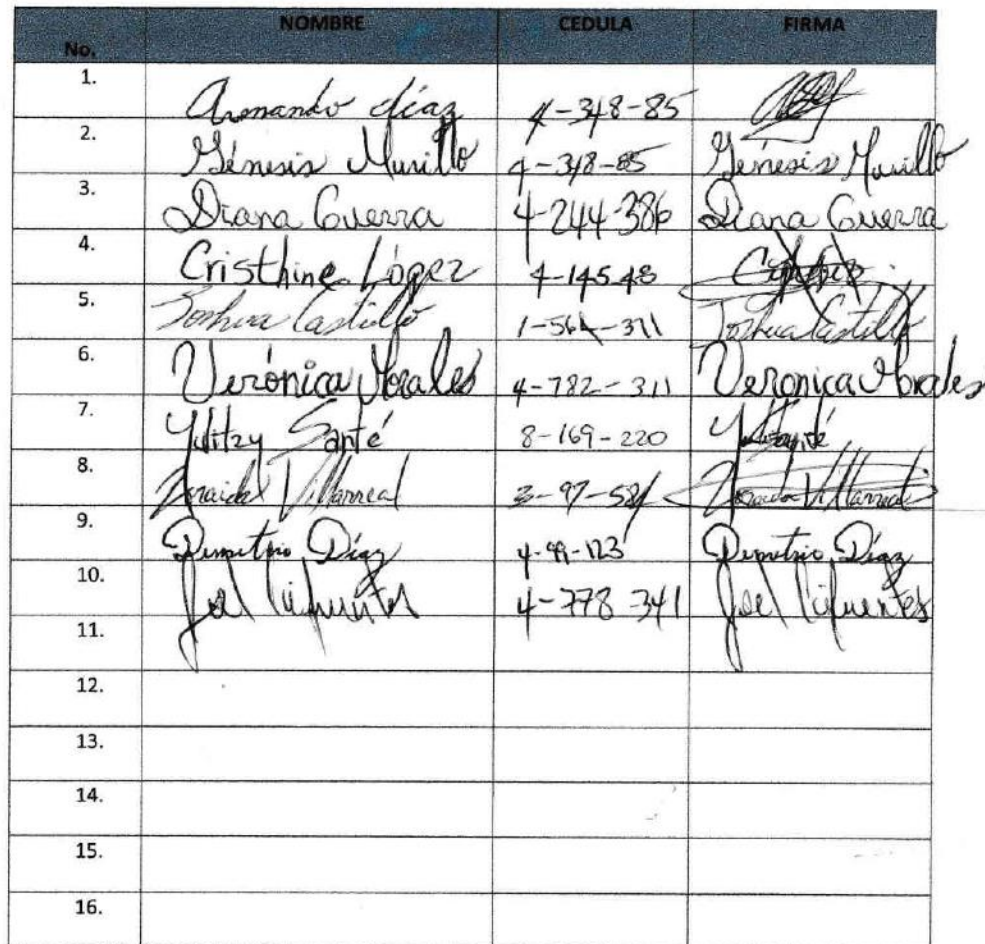 No. NOMBRE CEDULA FIRMA
1. Armando díaz 4-348-85
2. Génesis Murillo 4-348-85 Génesis Murillo
3. Diana Guerra 4-244-386 Diana Guerra
4. Cristhine López 4-145-48
5. Joshua Castillo 1-564-311 Joshua Castillo
6. Verónica Morales 4-782-311 Veronica Morales
7. Yulitzy Santé 8-169-220
8. Villarreal 3-97-581 Villarreal
9. Demetrio Díaz 4-99-123 Demetrio Díaz
10. Joel Cifuentes 4-778-341 Joel Cifuentes
11.
12.
13.
14.
15.
16.